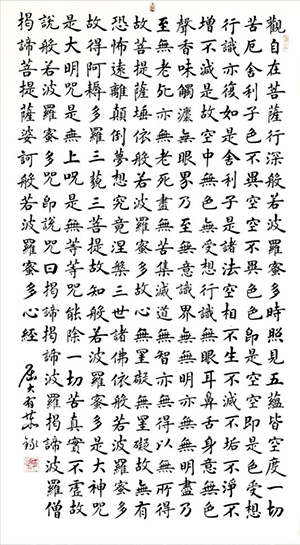 觀自在菩薩行深般若波羅蜜多時照見五蘊皆空度一切
苦厄舍利子色不異空空不異色色即是空空即是色受想
行識亦復如是舍利子是諸法空相不生不滅不垢不淨不
增不減是故空中無色無受想行識無眼耳鼻舌身意無色
聲香味觸灋無眼界乃至無意識界無無明亦無無明盡乃
至無老死亦無老死盡無苦集滅道無智亦無得以無所得
故菩提薩埵依般若波羅蜜多故心無罣礙無罣礙故無有
恐怖遠離顛倒夢想究竟涅槃三世諸佛依般若波羅蜜多
故得阿耨多羅三藐三菩提故知般若波羅蜜多是大神咒
是大明咒是無上咒是無等等咒能除一切苦真實不虛故
說般若波羅蜜多咒即說咒曰揭諦揭諦波羅揭諦波羅僧
揭諦菩提薩婆訶般若波羅蜜多心經
屈大有恭錄